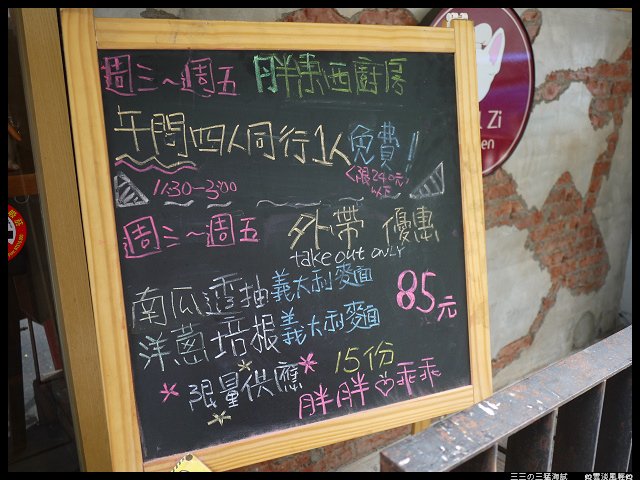 週三～週五 胖東西廚房
午間四人同行1人免費!
11:30～3:00
<限240元
以下
週三～週五 外帶 優惠
take out only
南瓜透抽義大利麵
洋蔥培根義大利麵
85元
限量供應 15份
胖胖♡乖乖
Zi
三三の三猛海賊
雲淡風輕